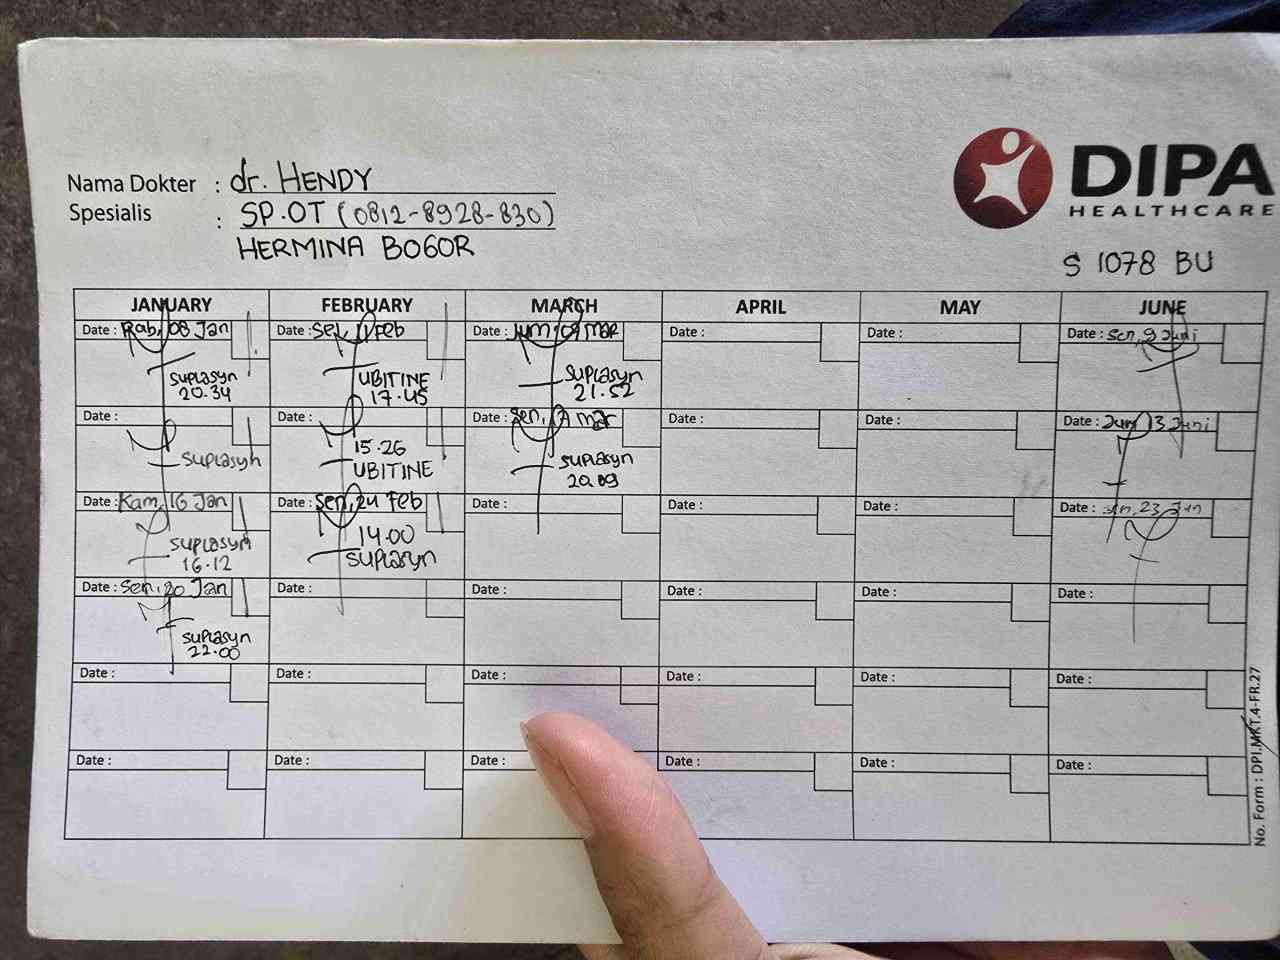 DIPA
HEALTHCARE
Nama Dokter : dr. HENDY
Spesialis : SP.OT (0812-8928-830)
HERMINA BOGOR
S 1078 BU
JANUARY FEBRUARY MARCH APRIL MAY JUNE
Date : Rab, 08 Jan Date : Sel, 11 Feb Date : Jum, 07 Mar Date : Date : Date : Sen, 9 Juni
Suplasyn UBITINE Suplasyn
20.34 17.45 21.52
Date : Date : Date : Sen, 17 Mar Date : Date : Date : Jum 13 Juni
Suplasyn 15.26 Suplasyn
UBITINE 20.09
Date : Kam, 16 Jan Date : Sen, 24 Feb Date : Date : Date : Date : Sen, 23 Jun
Suplasyn 14.00
16.12 Suplasyn
Date : Sen, 20 Jan Date : Date : Date : Date : Date :
Suplasyn
22.00
Date : Date : Date : Date : Date : Date :
Date : Date : Date : Date : Date : Date :
No. Form : DPI.MKT.4-FR.27